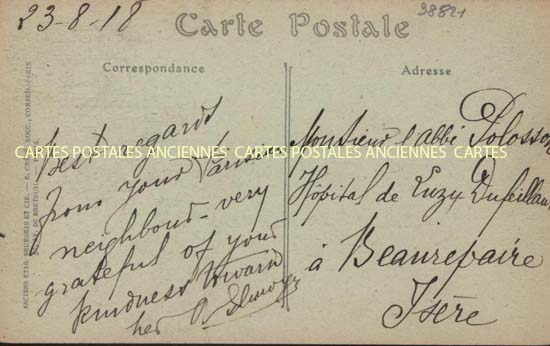 23-8-18
38821
Carte Postale
Correspondance
Adresse
best regards
from your
neighbour - very
grateful of your
kindness toward
her
Monsieur l'abbé Polosson
Hôpital de
à Beaurepaire
Isère
CARTES POSTALES ANCIENNES CARTES POSTALES ANCIENNES CARTES POSTALES ANCIENNES
ANCIENS ETAB. NEURDEIN ET CIE.